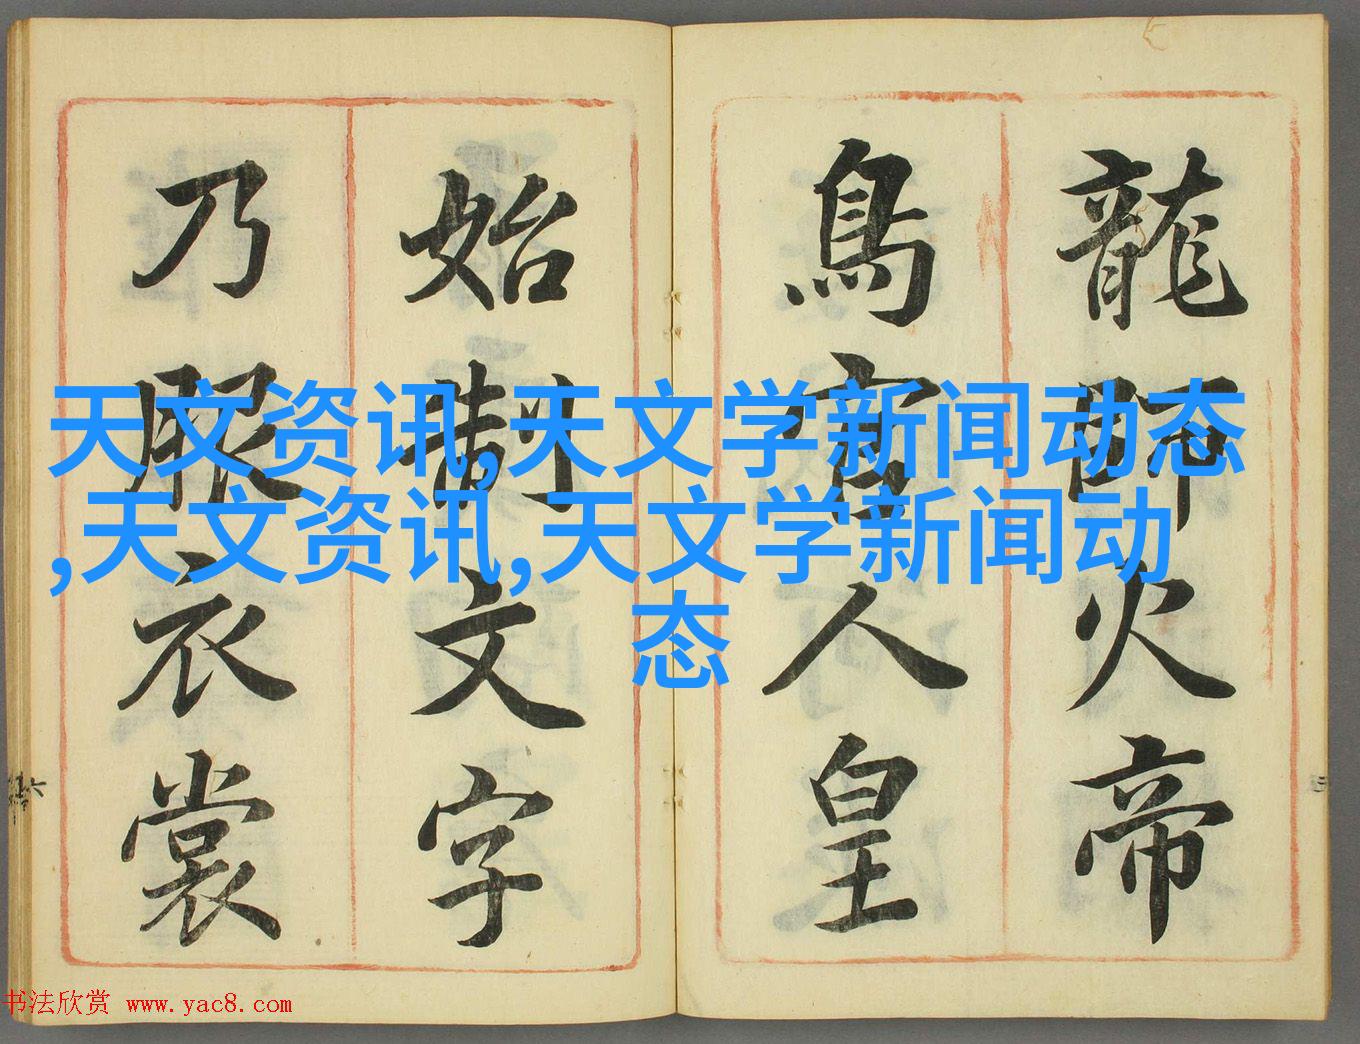 龍師火帝
鳥官人皇
始制文字
乃服衣裳
天文资讯,天文学新闻动态
,天文资讯,天文学新闻动
态
书法欣赏 www.yac8.com